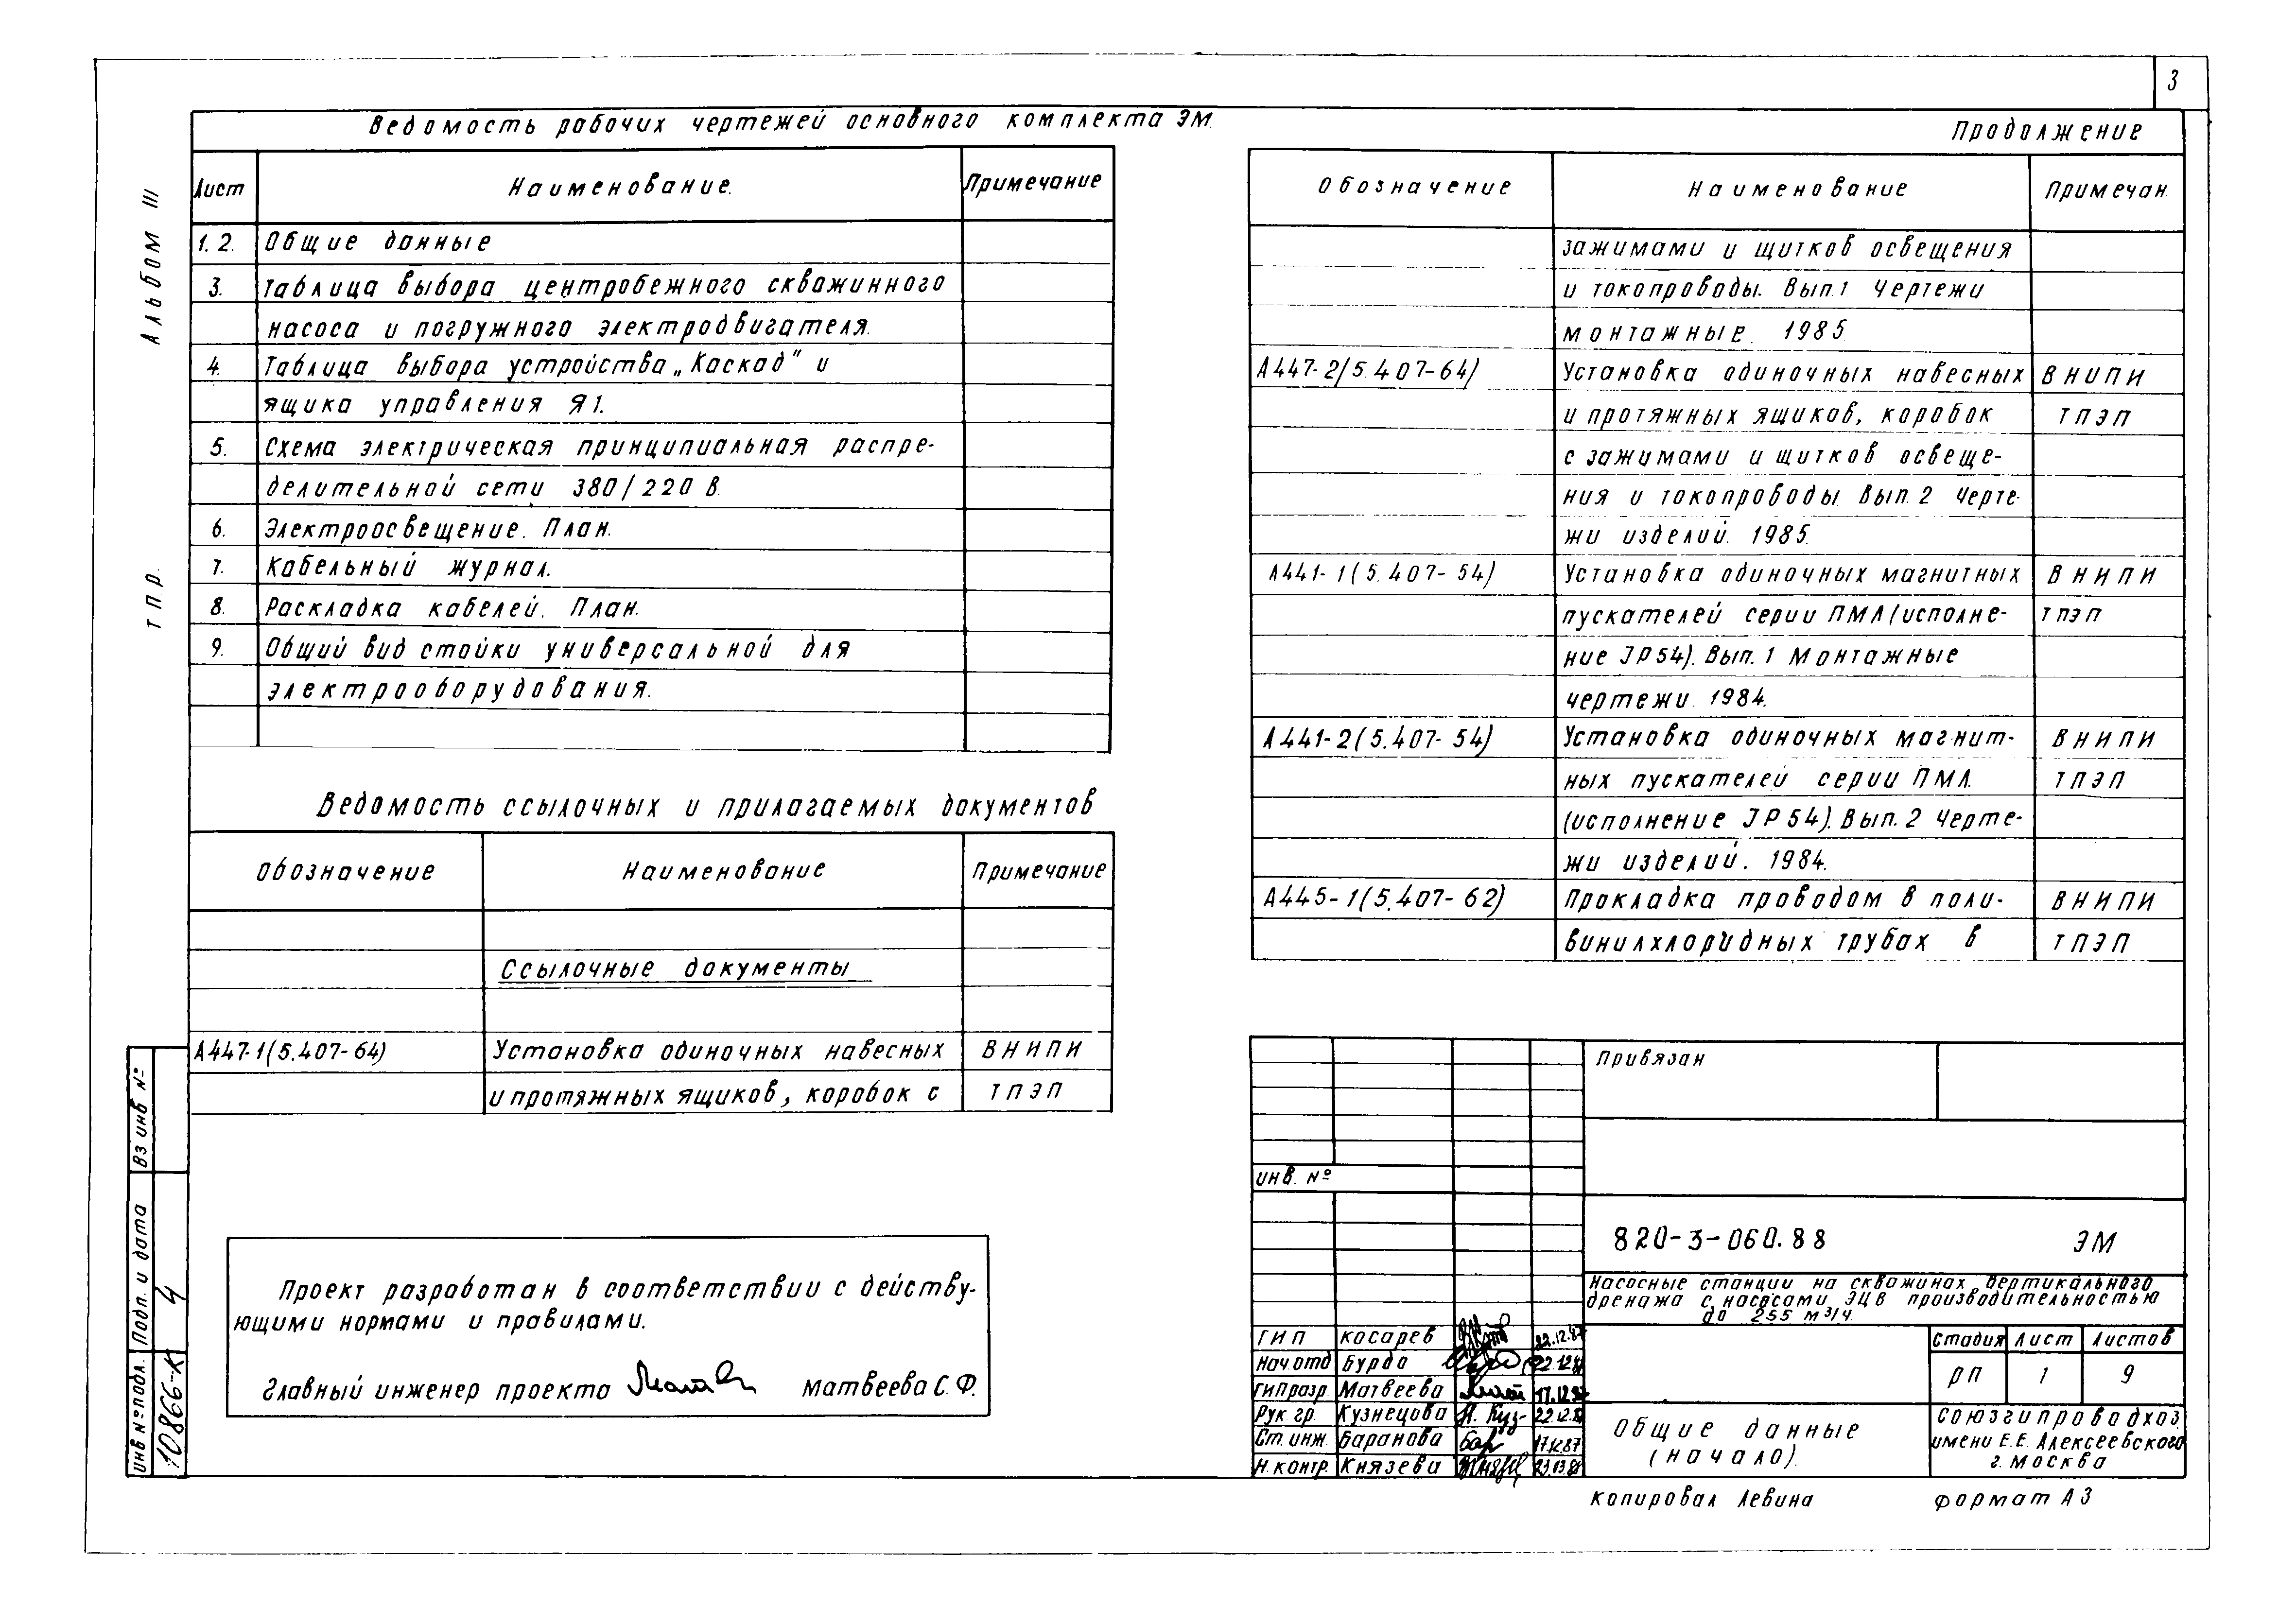 3
Альбом III
Т.П.Р.
Ведомость рабочих чертежей основного комплекта ЭМ.
Лист Наименование. Примечание
1.2. Общие данные
3. Таблица выбора центробежного скважинного
насоса и погружного электродвигателя.
4. Таблица выбора устройства „Каскад" и
ящика управления Я1.
5. Схема электрическая принципиальная распре-
делительной сети 380/220 В.
6. Электроосвещение. План.
7. Кабельный журнал.
8. Раскладка кабелей. План.
9. Общий вид стойки универсальной для
электрооборудования.
Ведомость ссылочных и прилагаемых документов
Обозначение Наименование Примечание
Ссылочные документы
А447-1(5.407-64) Установка одиночных навесных ВНИПИ
и протяжных ящиков, коробок с ТПЭП
Продолжение
Обозначение Наименование Примечан
зажимами и щитков освещения
и токопроводы. Вып.1 Чертежи
монтажные. 1985
А447-2(5.407-64) Установка одиночных навесных ВНИПИ
и протяжных ящиков, коробок ТПЭП
с зажимами и щитков освеще-
ния и токопроводы Вып.2 Черте-
жи изделий. 1985.
А441-1(5.407-54) Установка одиночных магнитных ВНИПИ
пускателей серии ПМЛ(исполне- ТПЭП
ние JP54). Вып.1 Монтажные
чертежи. 1984.
А441-2(5.407-54) Установка одиночных магнит- ВНИПИ
ных пускателей серии ПМЛ. ТПЭП
(исполнение JP54). Вып.2 Черте-
жи изделий. 1984.
А445-1(5.407-62) Прокладка проводом в поли- ВНИПИ
винилхлоридных трубах в ТПЭП
Проект разработан в соответствии с действу-
ющими нормами и правилами.
Главный инженер проекта Матвеева С.Ф.
Вз инв №
Подп. и дата
Инв № подл.
10866-К 4
Привязан
инв. №
820-3-060.88 ЭМ
Насосные станции на скважинах вертикального
дренажа с насосами ЭЦВ производительностью
до 255 м³/ч.
ГИП Косарев 22.12.87
Нач.отд Бурдо 22.12.87
ГИП разр. Матвеева 17.12.87
Рук.гр. Кузнецова 22.12.87
Ст.инж. Баранова 17.12.87
Н.контр. Князева
Стадия Лист Листов
РП 1 9
Общие данные
(начало).
Союзгипроводхоз
имени Е.Е. Алексеевского
г. Москва
Копировал Левина Формат А3